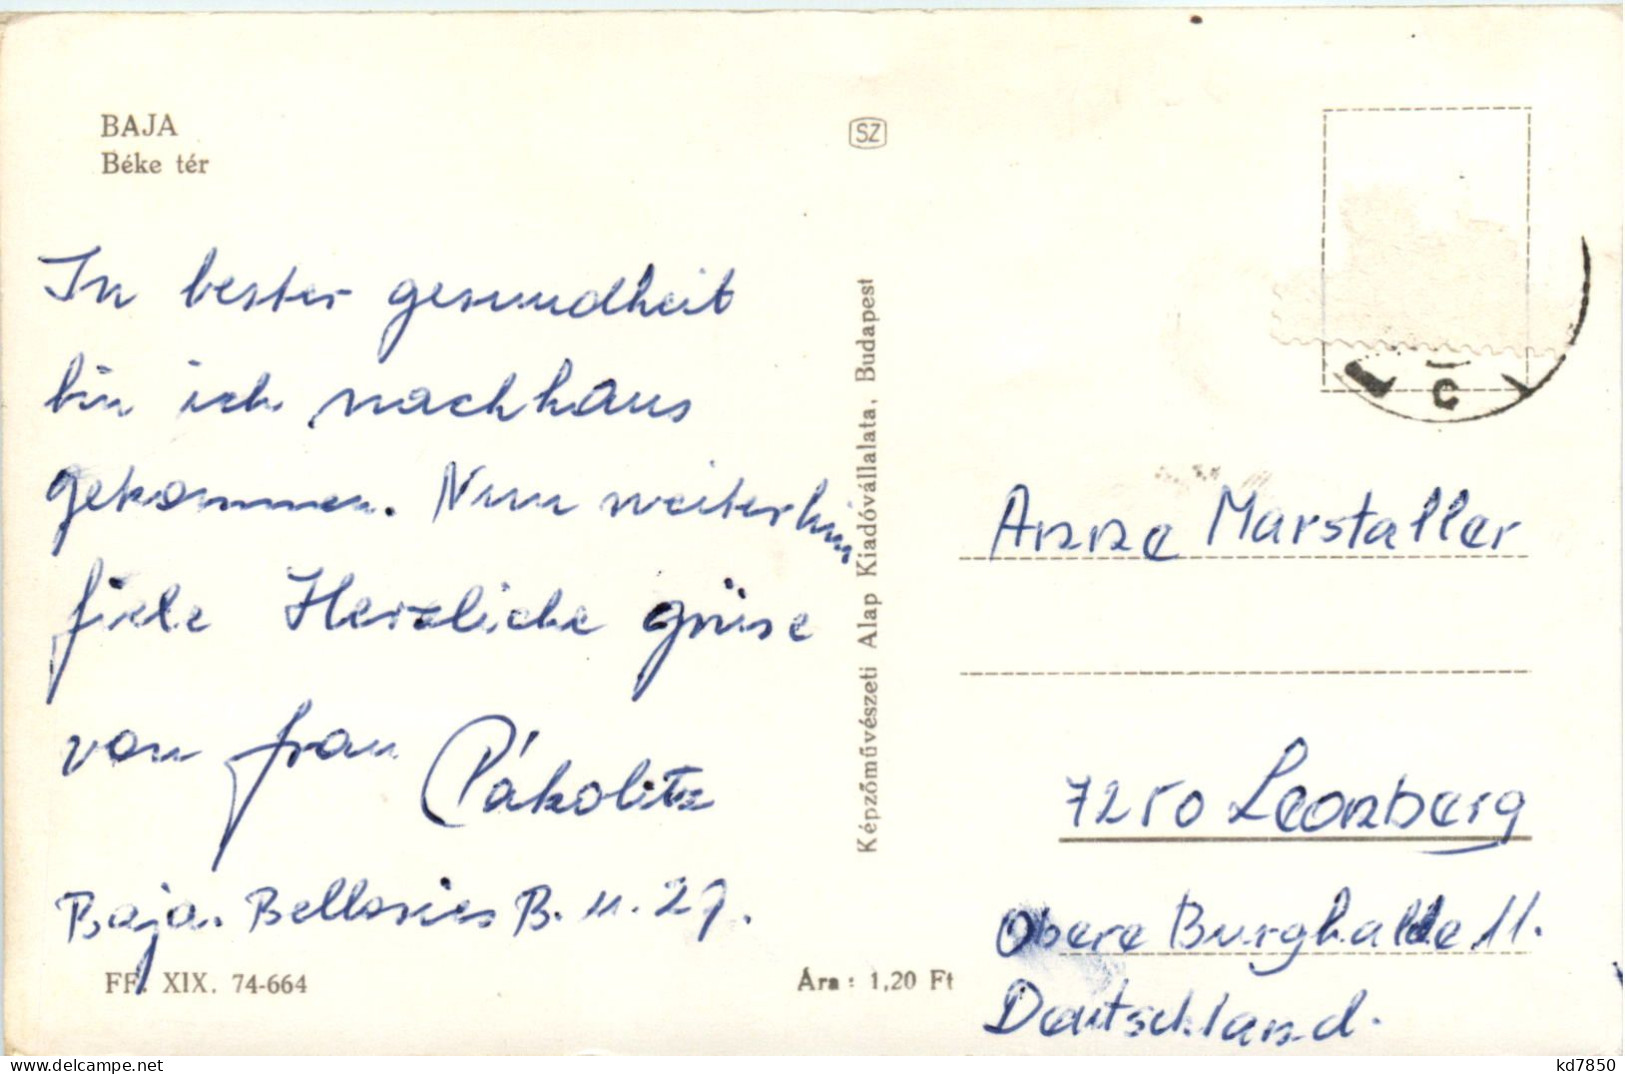 BAJA
Béke tér
SZ
In bester gesundheit
bin ich nachhaus
gekommen. Nun weiterhin
fiele Herzliche grüse
von frau Pákolitz
Baja. Bellosics B. u. 27.
FF. XIX. 74-664
Ára : 1,20 Ft
Képzőművészeti Alap Kiadóvállalata, Budapest
Anne Marstaller
7250 Leonberg
Obere Burghalde 11.
Deutschland.
delcampe.net
kd7850